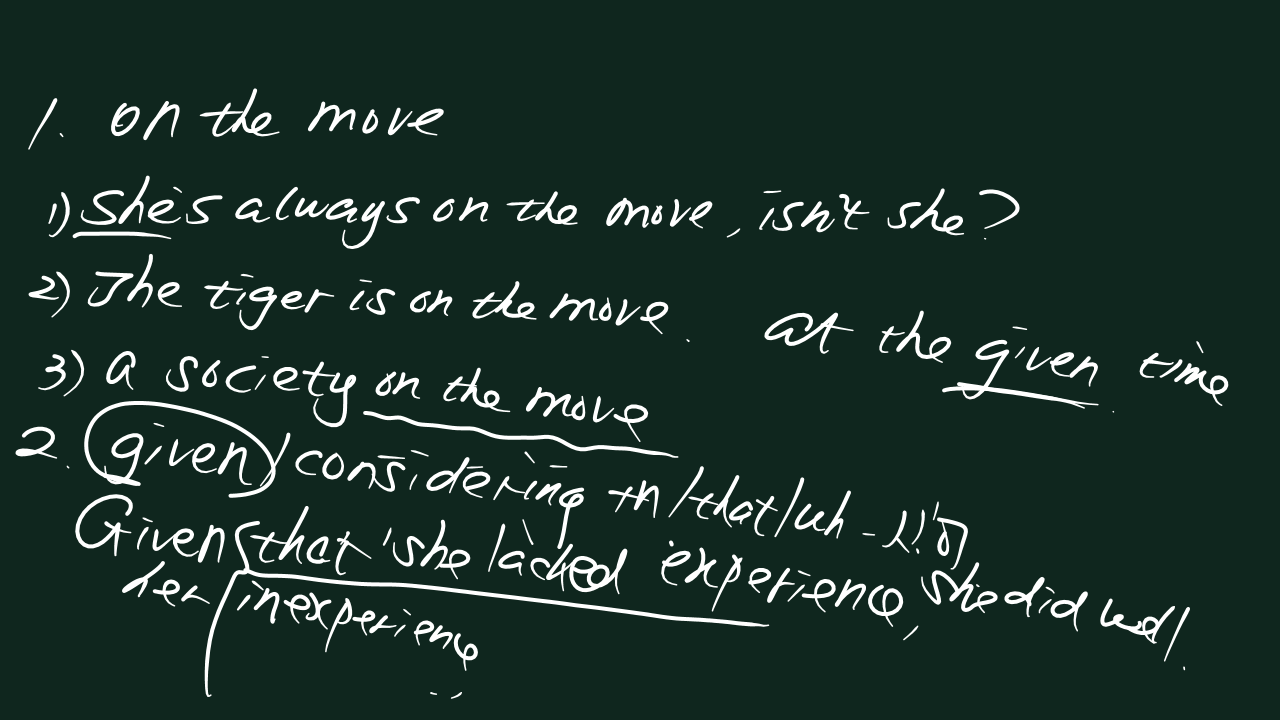 1. on the move
1) She's always on the move, isn't she?
2) The tiger is on the move.
at the given time
3) a society on the move
2. given/considering +n/that/wh-
Given that she lacked experience, she did well.
her inexperience